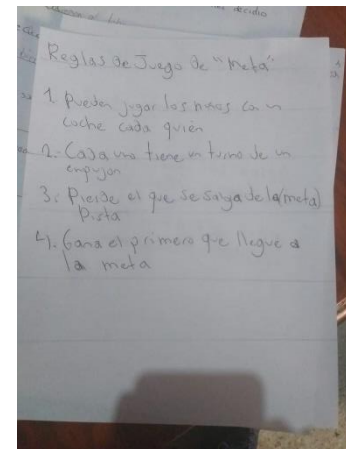 decidio
Reglas de Juego de "meta"
1. Pueden jugar los niños con un
coche cada quién
2. Cada uno tiene un turno de un
empujon
3. Pierde el que se salga de la (meta)
Pista
4. Gana el primero que llegue a
la meta